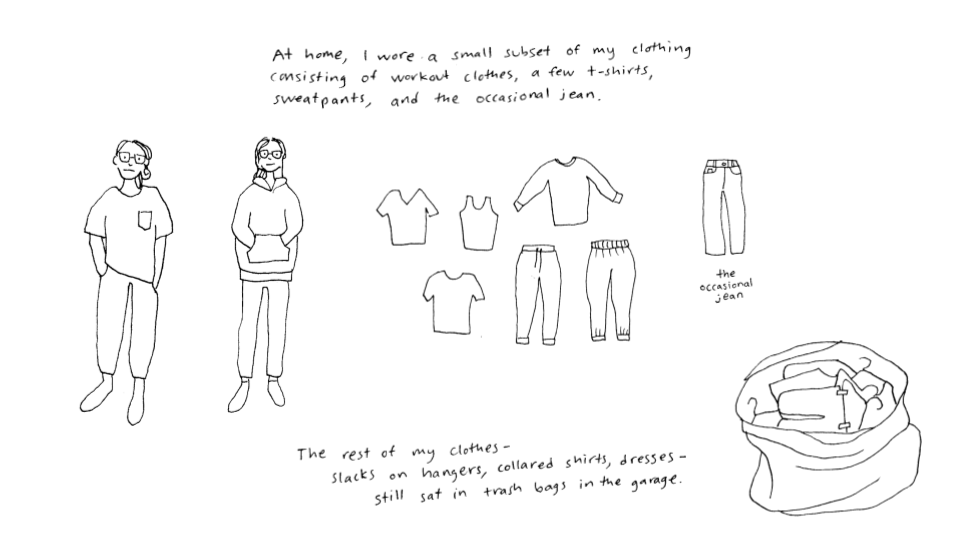 At home, I wore a small subset of my clothing
consisting of workout clothes, a few t-shirts,
sweatpants, and the occasional jean.
the
occasional
jean
The rest of my clothes-
slacks on hangers, collared shirts, dresses-
still sat in trash bags in the garage.